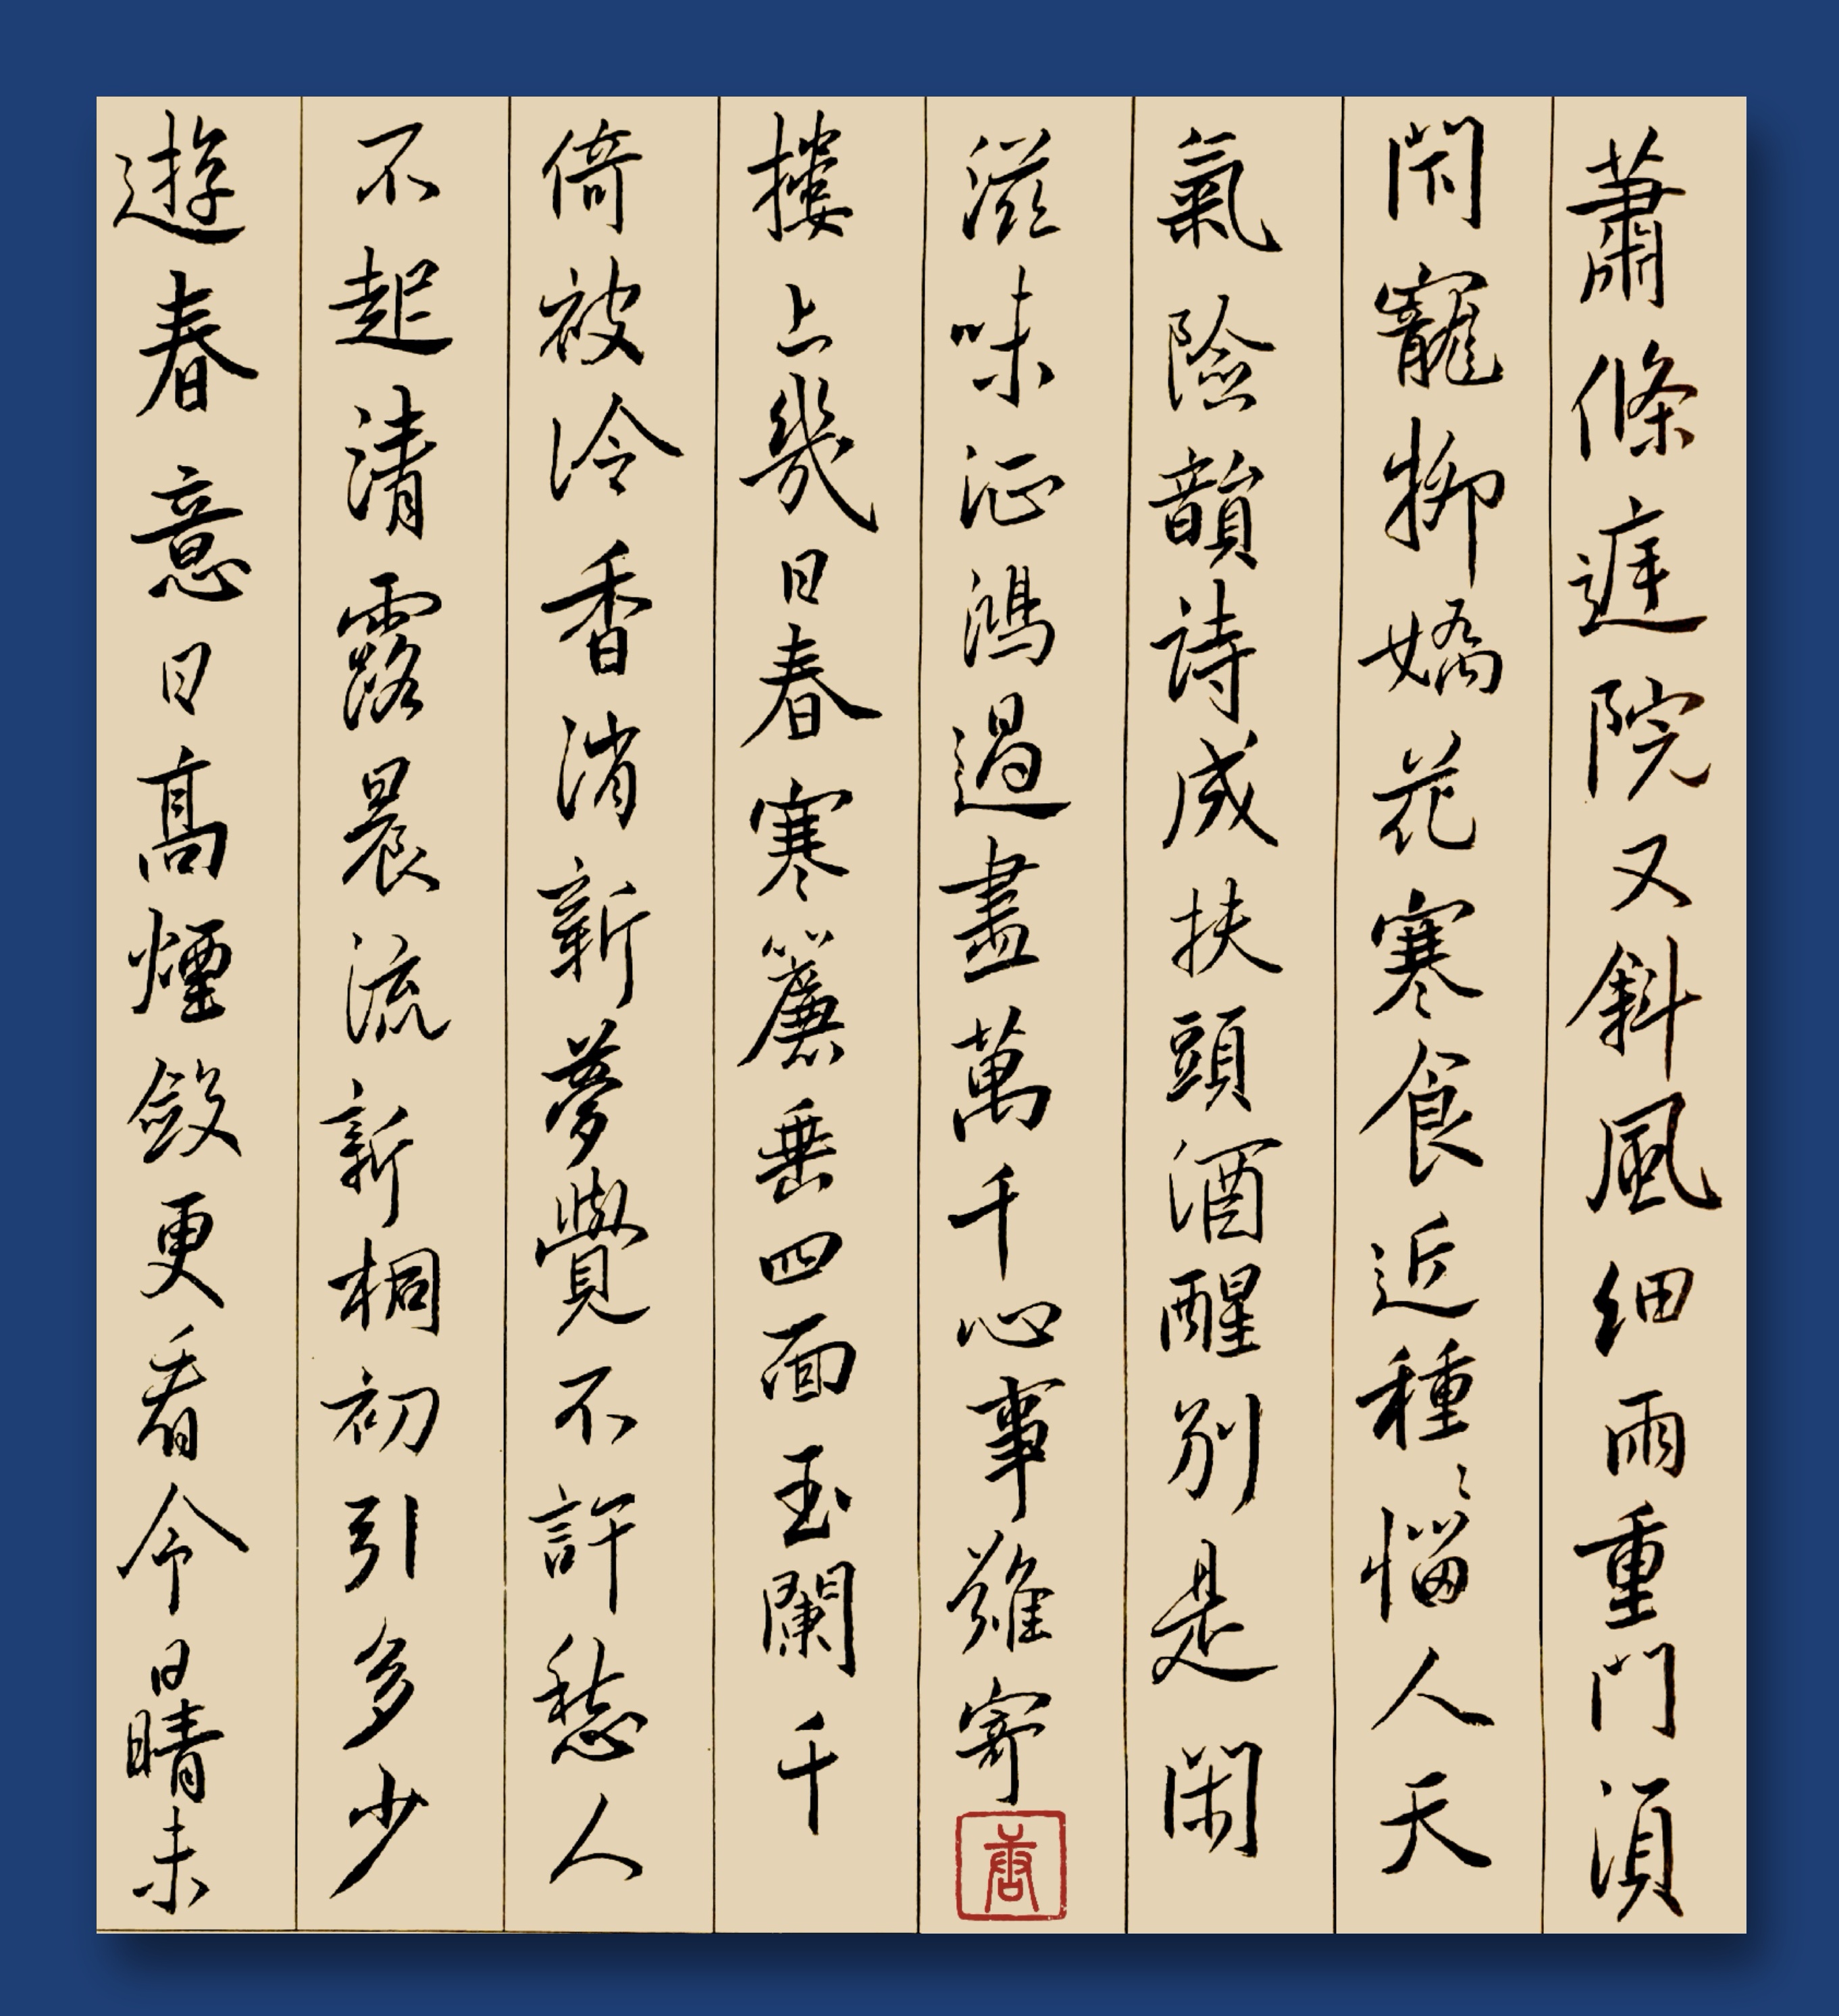 蕭條庭院又斜風細雨重門須
閇寵柳嬌花寒食近種〻惱人天
氣險韻詩成扶頭酒醒別是閑
滋味征鴻過盡萬千心事難寄
樓上幾日春寒簾垂四面玉闌干
倚被冷香消新夢覺不許愁人
不起清露晨流新桐初引多少
遊春意日高煙斂更看今日晴未
唐